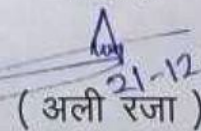 21-12
( अली रजा )